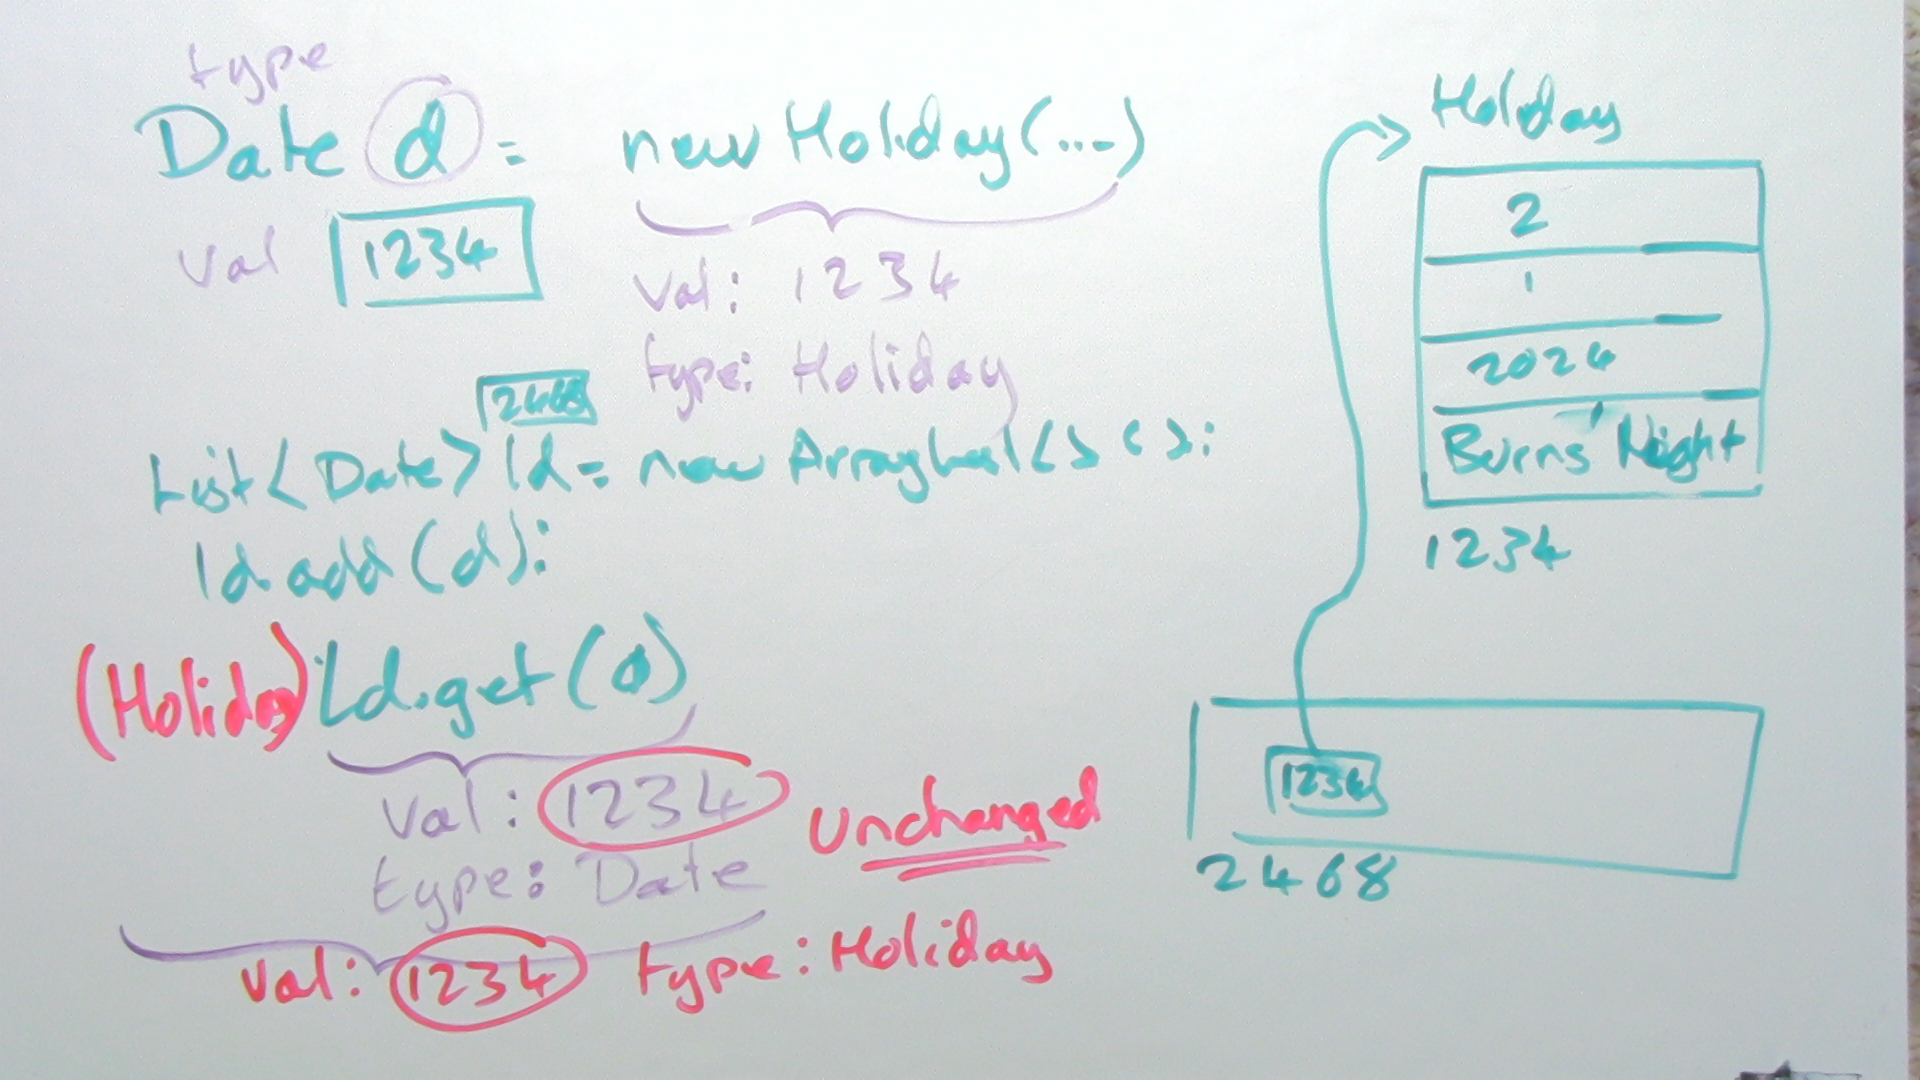 type
Date d = new Holiday(...)
val 1234
val: 1234
type: Holiday
2468
List<Date> ld = new ArrayList<>();
ld.add(d);
(Holiday) Ld.get(0)
val: 1234
unchanged
type: Date
val: 1234 type: Holiday
Holiday
2
1
2024
Burns' Night
1234
1234
2468